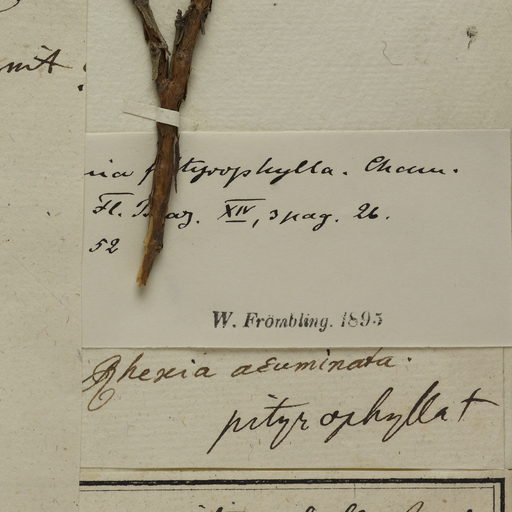 mit
nia pityrophylla. Cham.
Fl. Braz. XIV, 3 pag. 26.
52
W. Frömbling. 1895
Rhexia acuminata.
pityrophylla †